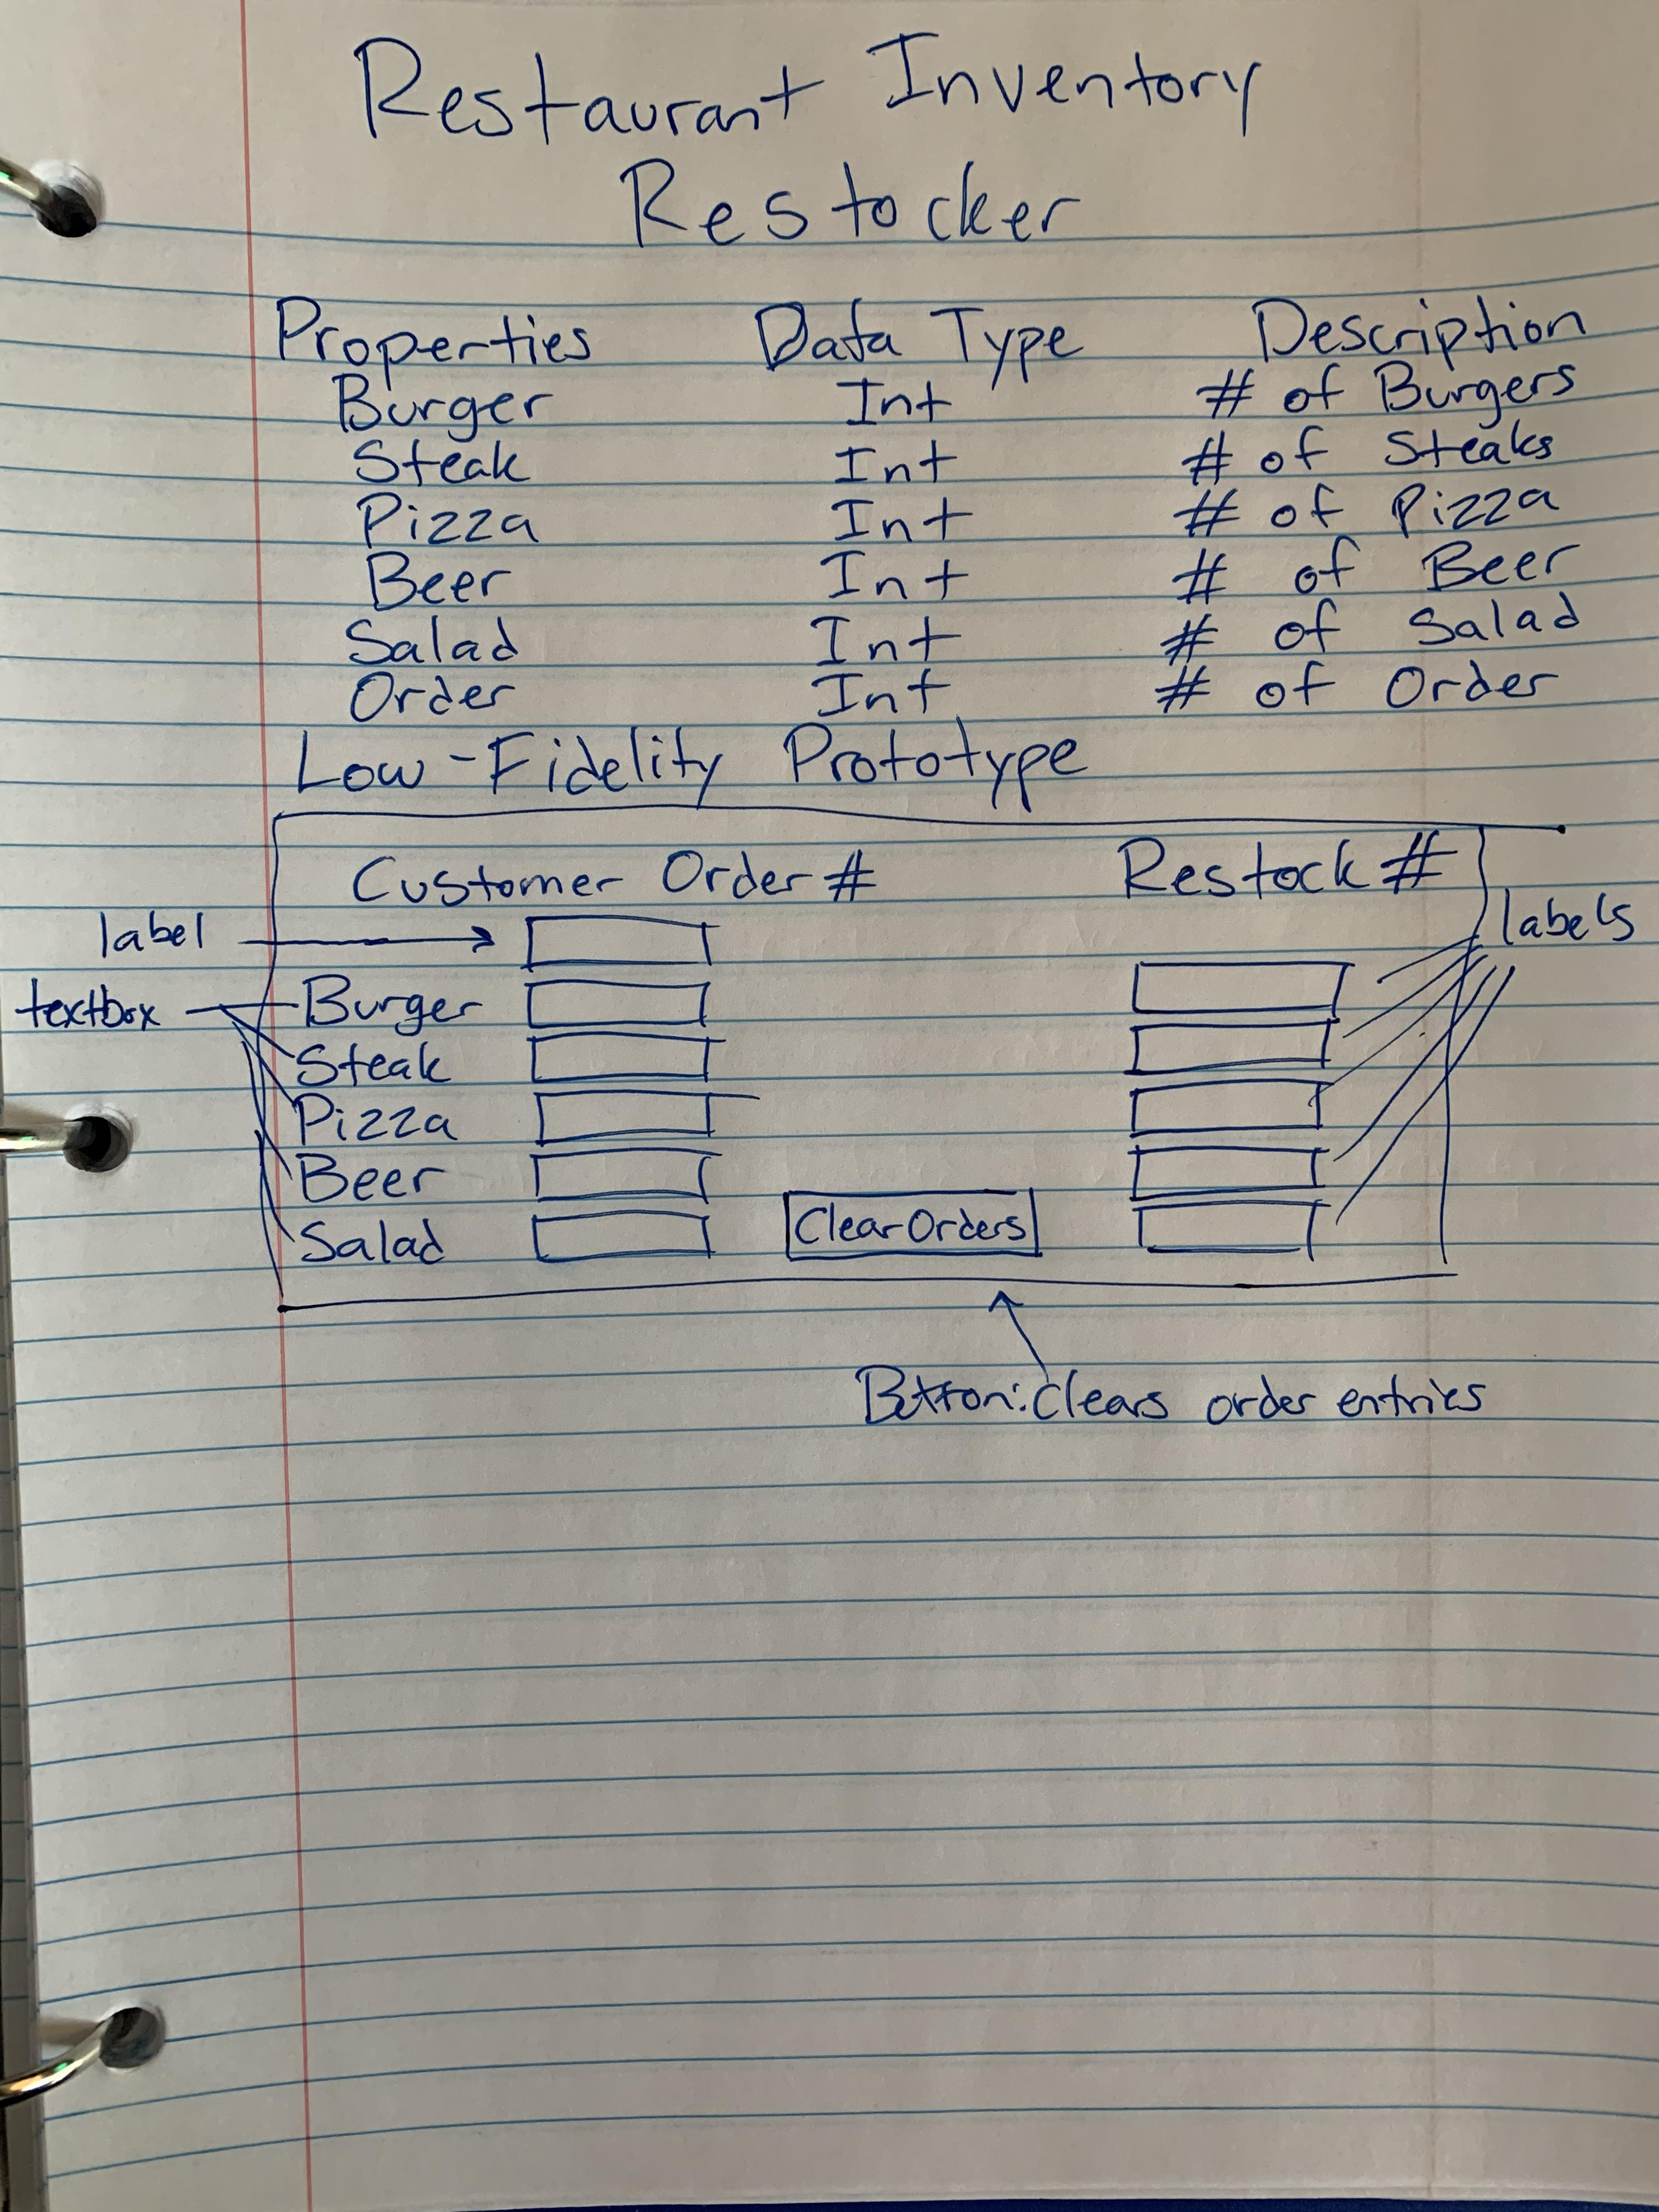 Restaurant Inventory
Restocker
Properties Data Type Description
Burger Int # of Burgers
Steak Int # of Steaks
Pizza Int # of Pizza
Beer Int # of Beer
Salad Int # of Salad
Order Int # of Order
Low-Fidelity Prototype
Customer Order # Restock #
label labels
textbox Burger
Steak
Pizza
Beer
Salad Clear Orders
Button: Clears order entries